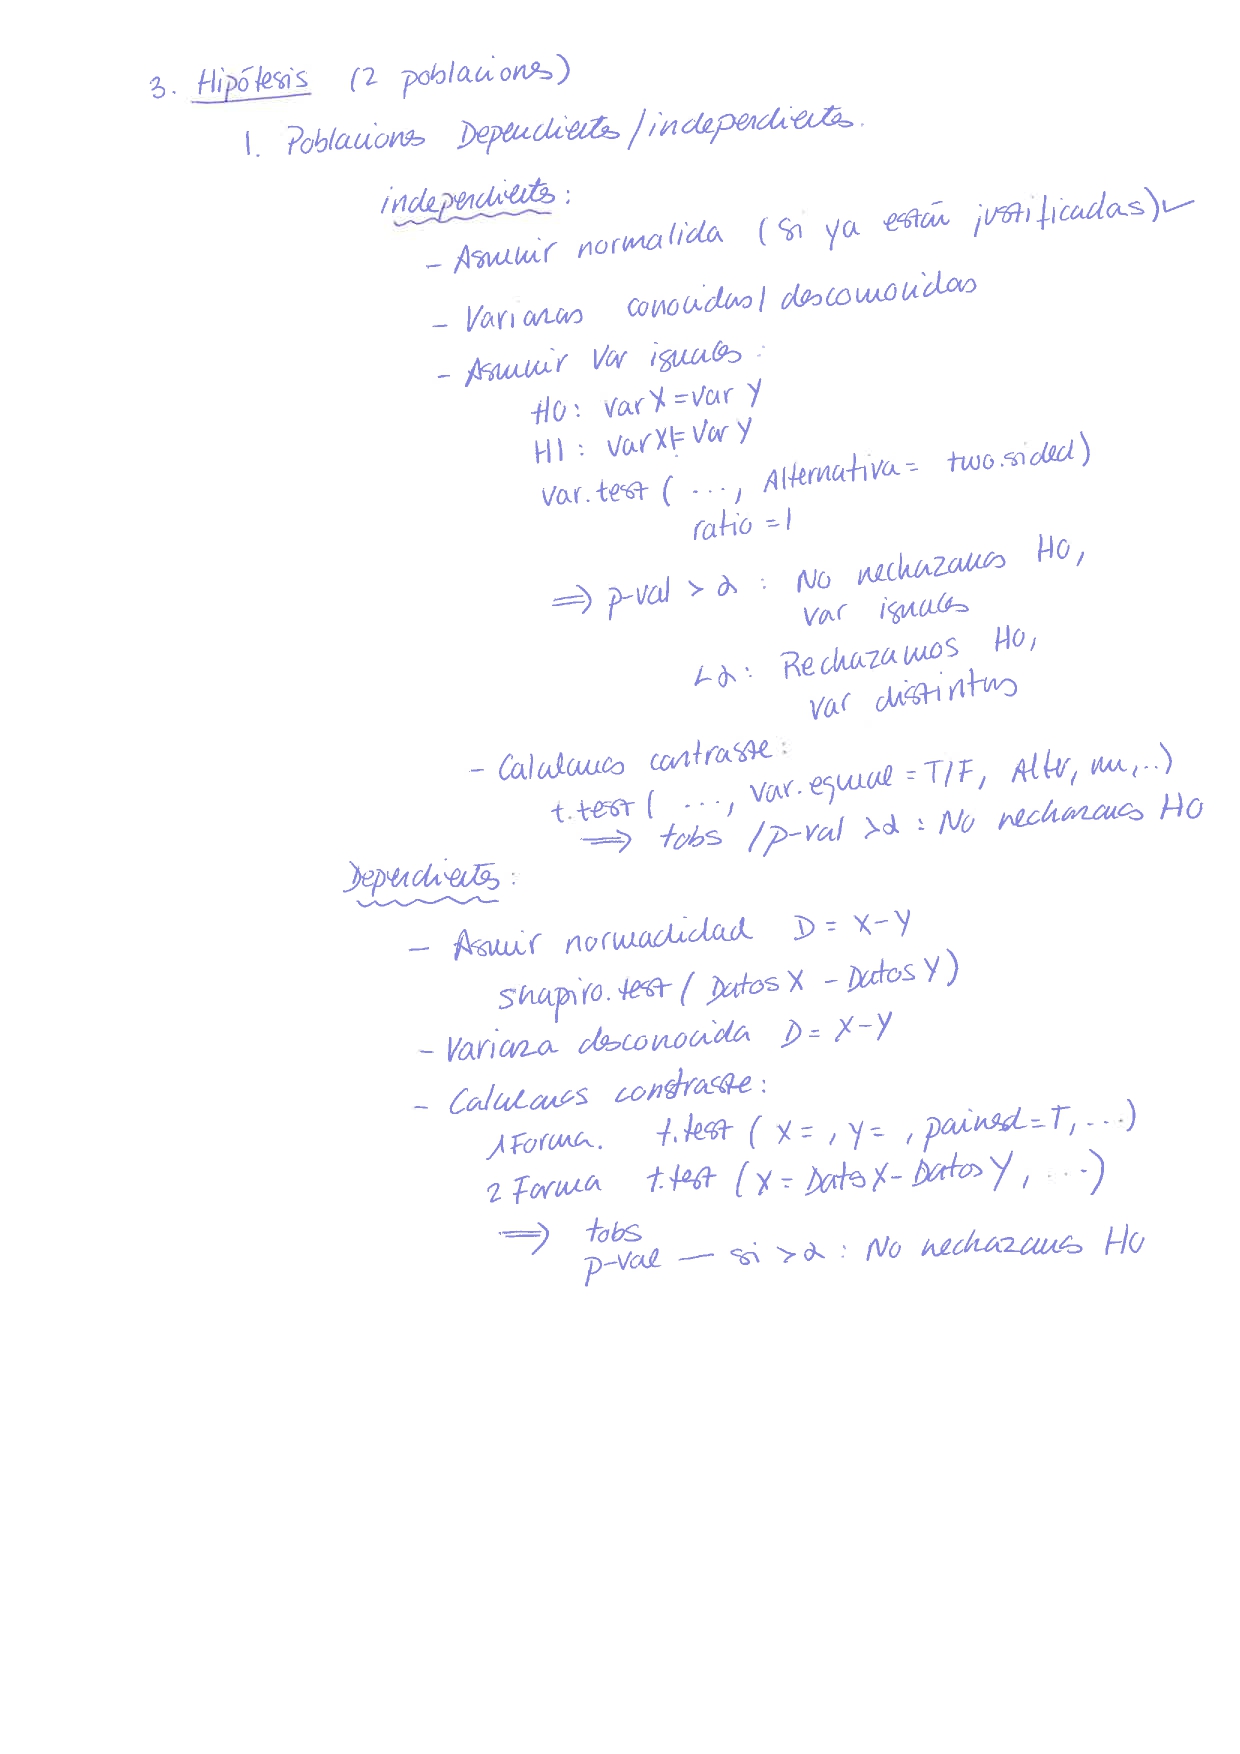 3. Hipótesis (2 poblaciones)
1. Poblaciones Dependientes/independientes.
independientes:
- Asumir normalida (si ya están justificadas)✓
- Varianzas conocidas/descomonidas
- Asumir Var iguales:
H0: var X = var Y
H1: var X ≠ Var Y
var.test ( ..., Alternativa = two.sided)
ratio = 1
⇒ p-val > α : No rechazamos H0,
var iguales
< α : Rechazamos H0,
var distintas
- Calculamos contraste:
t.test ( ..., var.equal = T/F, Alter, mu, ..)
⇒ tobs /p-val > α : No rechazamos H0
Dependientes:
- Asumir normadidad D = X-Y
shapiro.test ( Datos X - Datos Y)
- Varianza desconocida D = X-Y
- Calculamos constraste:
1 Forma. t.test ( X = , Y = , paired = T, ...)
2 Forma t.test (X = Datos X - Datos Y, ...)
⇒ tobs
p-val — si > α : No rechazamos H0